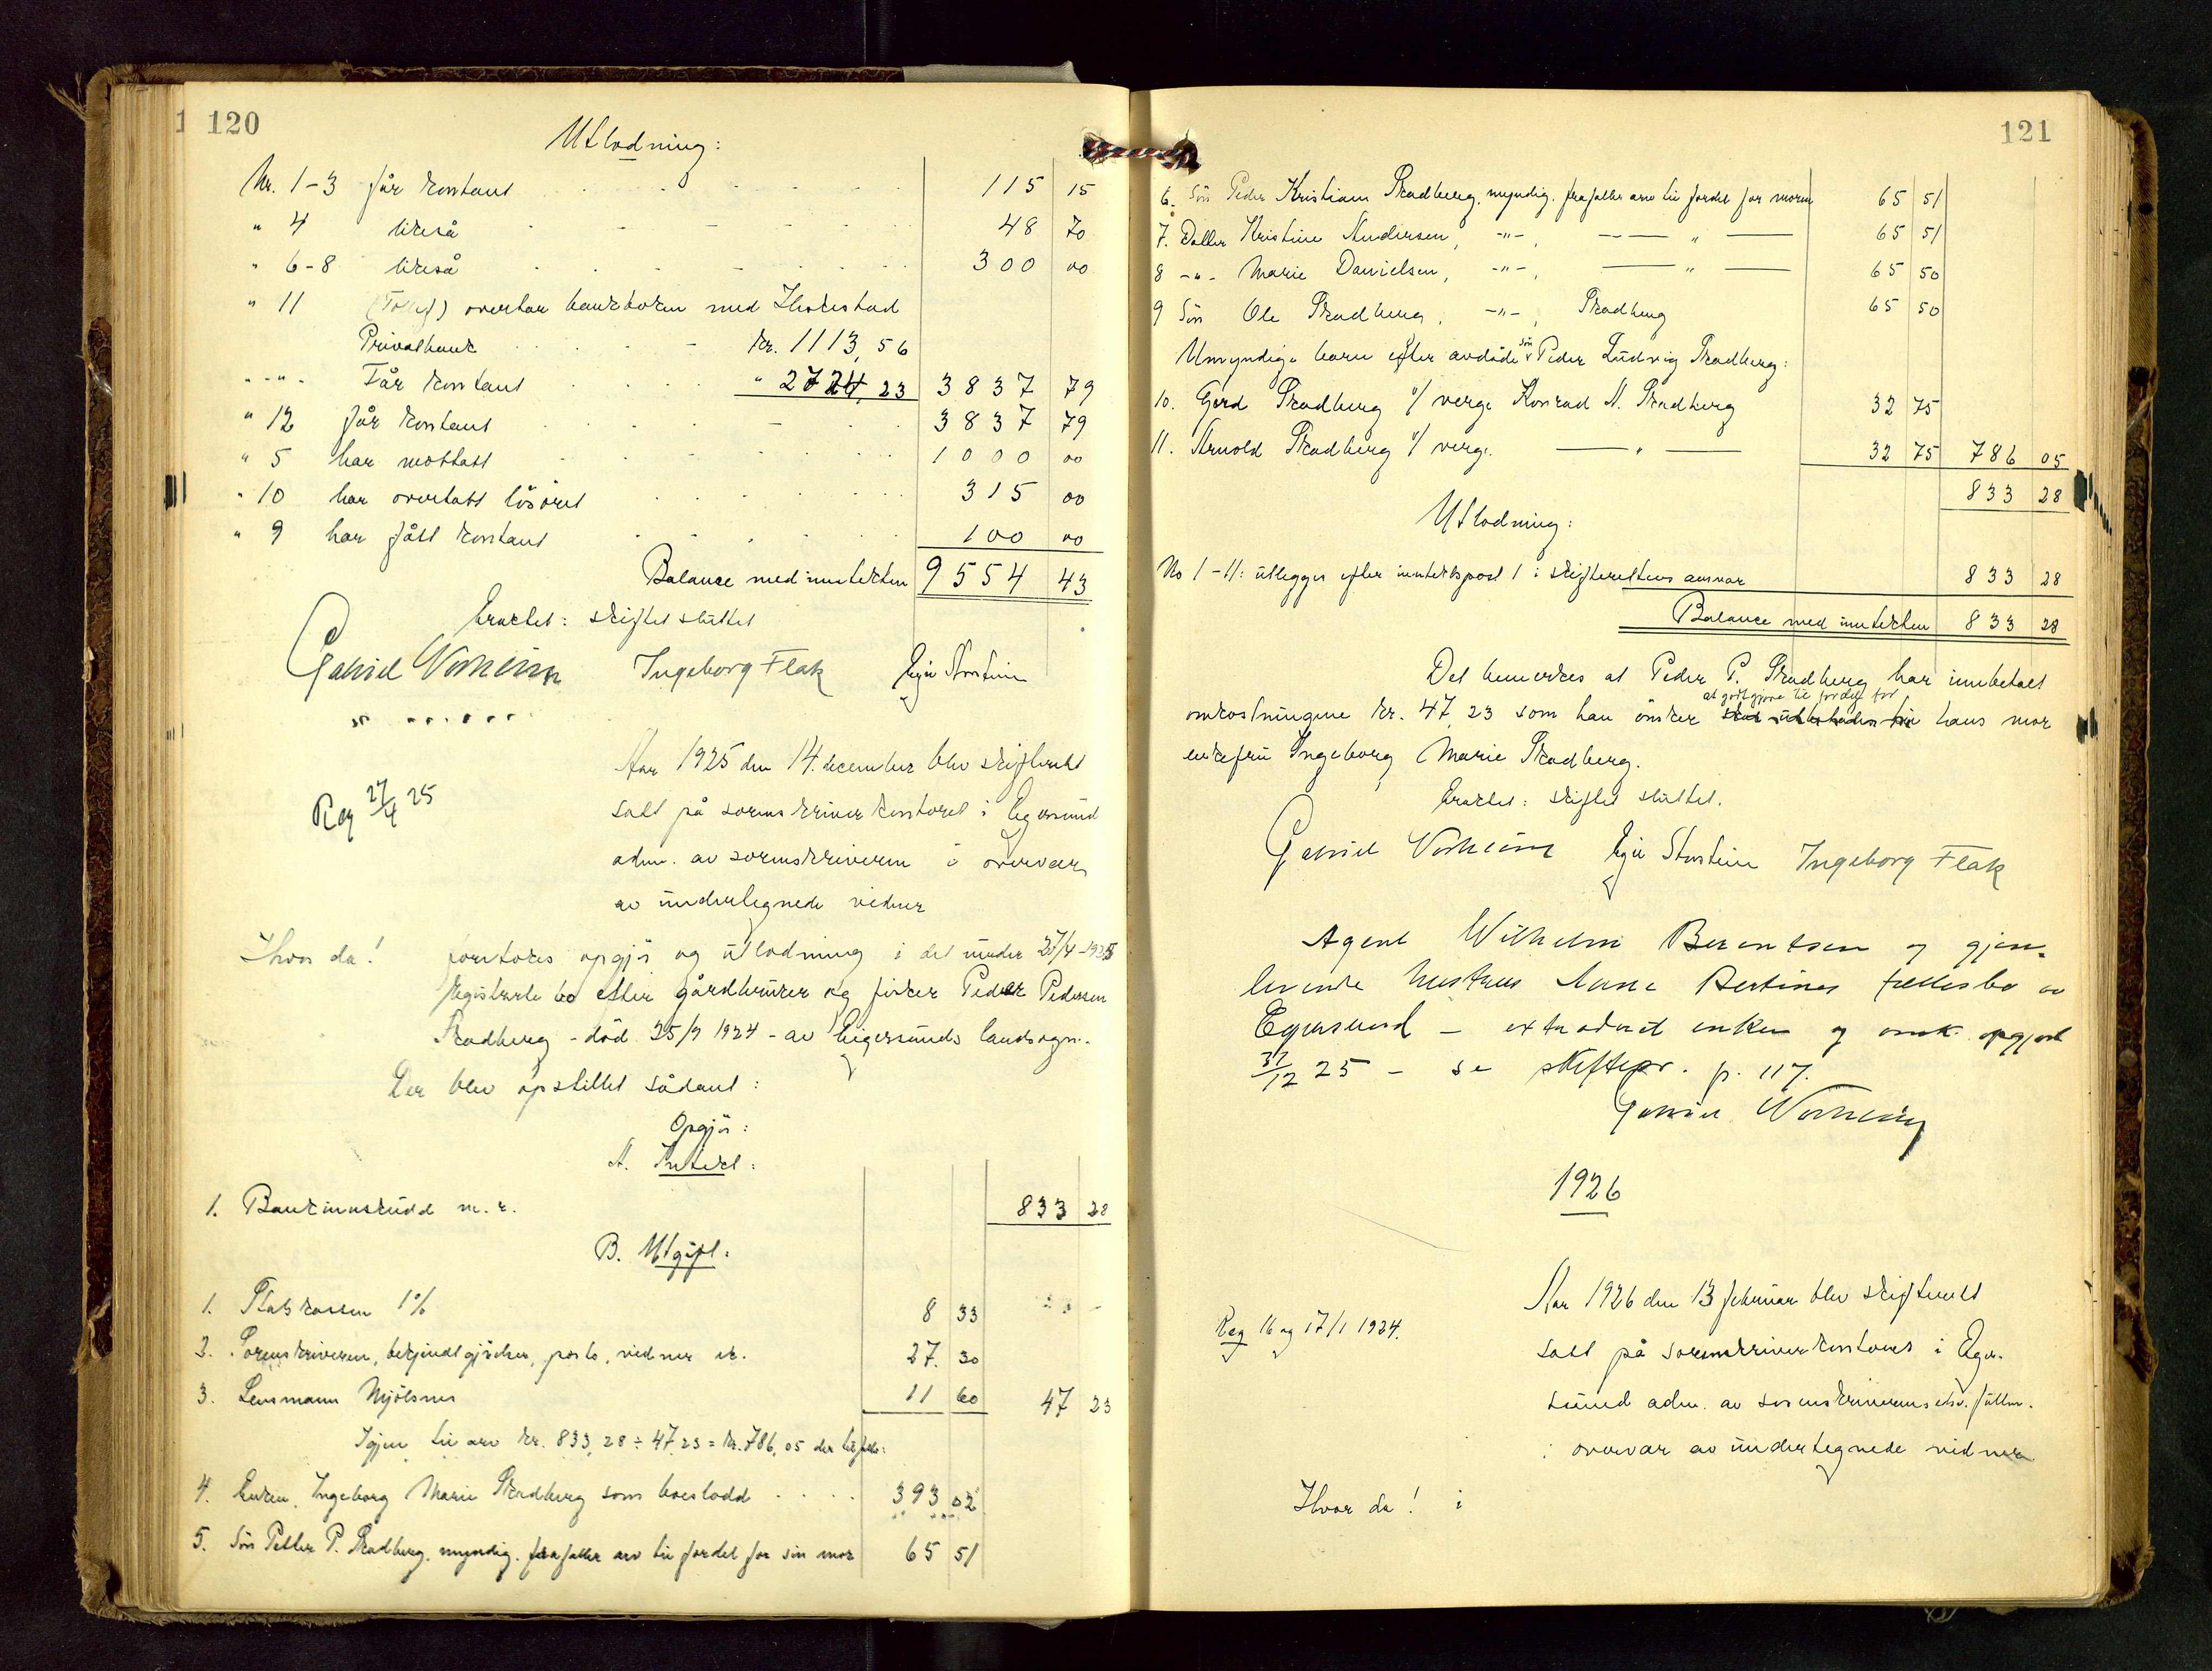 120
Utlodning:
Nr. 1-3 får kontant 115 15
" 4 likeså 48 70
" 6-8 likeså 300 00
" 11 overtar bankboken med
Privatbank kr. 1113,56
" - " - Får kontant " 2724,23 3837 79
" 12 får kontant 3837 79
" 5 har mottatt 1000 00
" 10 har overtatt lösöret 315 00
" 9 har fått kontant 100 00
Balance med inntekten 9554 43
skiftet sluttet
Gabriel Ingeborg Flak
Reg 27/4 25
Aar 1925 den 14. december blev skifterett
satt på sorenskriverkontoret i Egersund
adm. av sorenskriveren i overvær
av undertegnede vidner
Hvor da! foretokes opgjör og utlodning i det under 27/4 -1925
registrerte bo efter gårdbruker og fisker Peder Pedersen
Skadberg - död 25/9 1924 - av Eigersunds landsogn.
Der blev opstillet sådant:
Opgjör:
A. Inntekt:
1. Bankinnskudd m. r. 833 28
B. Utgift:
1. Statskassen 1% 8 33
2. Sorenskriveren, porto, vidner etc. 27. 30
3. Lensmann Mjölsnes 11 60 47 23
Igjen til arv kr. 833,28 ÷ 47.23 = kr. 786,05 der tilfaller:
4. Enken, Ingeborg Marie Skadberg som boeslodd 393 02
5. Sön Petter P. Skadberg, myndig, frafaller arv til fordel for sin mor 65 51
121
6. Sön Peder Kristian Skadberg, myndig. frafaller arv til fordel for moren 65 51
7. Datter Kristine Andersen, -"-, — " — 65 51
8 -"- Marie Danielsen, -"-, — " — 65 50
9 Sön Ole Skadberg, -"-, Skadberg 65 50
Umyndige barn efter avdöde sön Peder Ludvig Skadberg:
10. Gerd Skadberg v/ verge Konrad A. Skadberg 32 75
11. Arnold Skadberg v/ verge — " — 32 75 786 05
833 28
Utlodning:
No 1-11: utlegges efter inntektspost 1 i skifterettens ansvar 833 28
Balance med inntekten 833 28
Det bemerkes at Peder P. Skadberg har innbetalt
at godtgjöre til fordel for
omkostningene kr. 47,23 som han önsker hans mor
enkefru Ingeborg Marie Skadberg.
skiftet sluttet.
Gabriel Ingeborg Flak
Agent Wilhelm Berentsen og gjen-
levende hustru Anna Bertines fellesbo av
Egersund - extradert enken og omk. opgjort
12 25 - se skiftepr. p. 117.
Gabriel
1926
Reg 16 og 17/1 1924.
Aar 1926 den 13 februar blev skifterett
satt på sorenskriverkontoret i Eger-
sund adm. av sorenskriverens edsv. fullm.
i overvær av undertegnede vidner
Hvor da! i